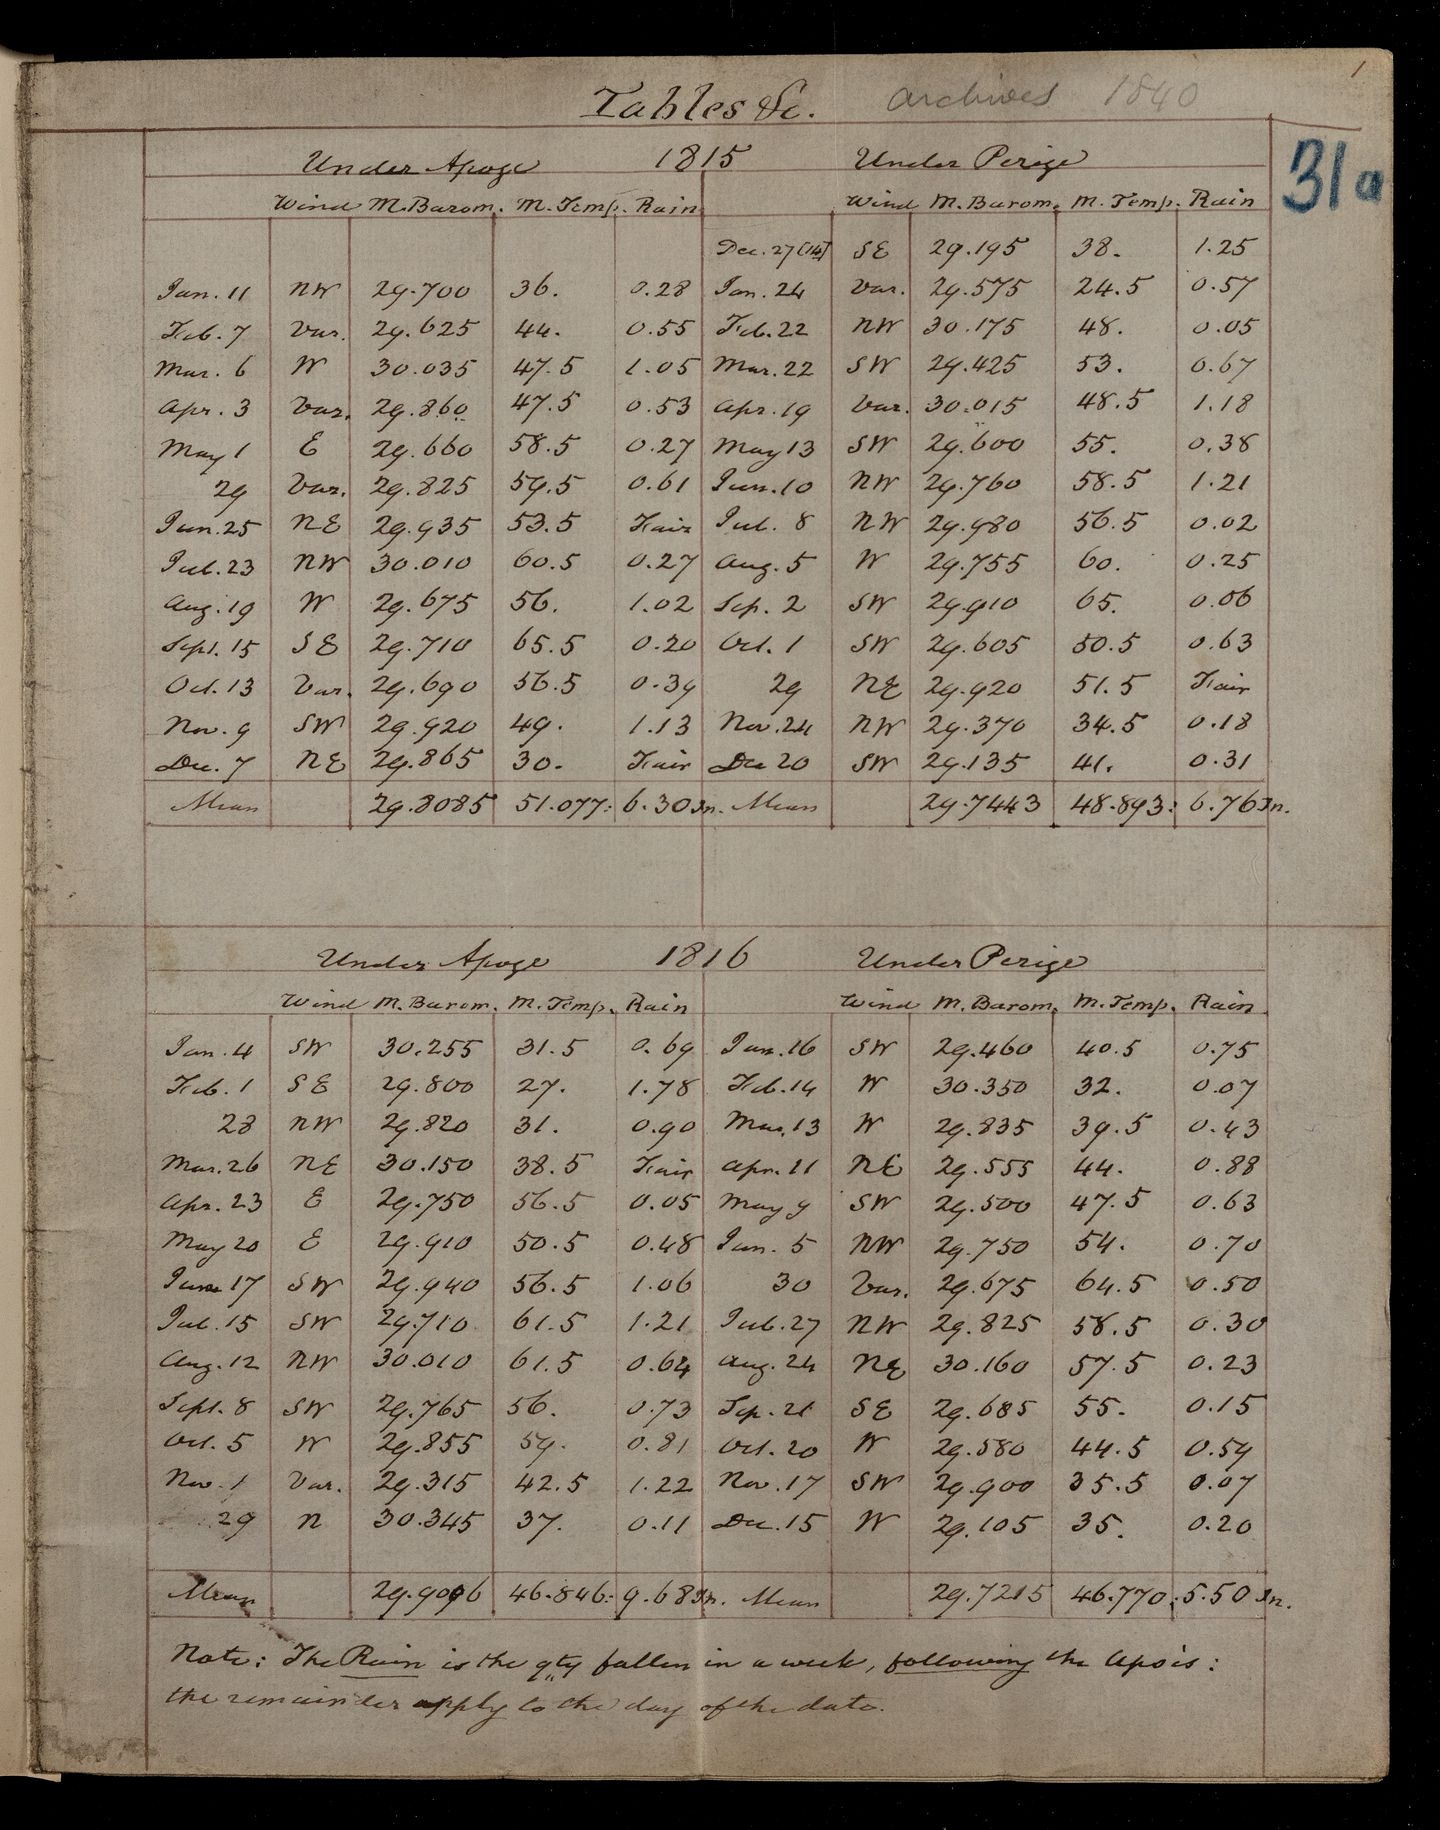 1
Tables &c. archives 1840
31a
Under Apoge 1815 Under Perige
Wind M. Barom. M. Temp. Rain Wind M. Barom. M. Temp. Rain
Dec. 27 [14] SE 29.195 38. 1.25
Jan. 11 NW 29.700 36. 0.28 Jan. 24 Var. 29.575 24.5 0.57
Feb. 7 Var. 29.625 44. 0.55 Feb. 22 NW 30.175 48. 0.05
Mar. 6 W 30.035 47.5 1.05 Mar. 22 SW 29.425 53. 0.67
Apr. 3 Var. 29.860 47.5 0.53 Apr. 19 Var. 30.015 48.5 1.18
May 1 E 29.660 58.5 0.27 May 13 SW 29.600 55. 0.38
29 Var. 29.825 59.5 0.61 Jun. 10 NW 29.760 58.5 1.21
Jun. 25 NE 29.935 53.5 Fair Jul. 8 NW 29.980 56.5 0.02
Jul. 23 NW 30.010 60.5 0.27 Aug. 5 W 29.755 60. 0.25
Aug. 19 W 29.675 56. 1.02 Sep. 2 SW 29.910 65. 0.06
Sept. 15 SE 29.710 65.5 0.20 Oct. 1 SW 29.605 50.5 0.63
Oct. 13 Var. 29.690 56.5 0.39 29 NE 29.920 51.5 Fair
Nov. 9 SW 29.920 49. 1.13 Nov. 24 NW 29.370 34.5 0.18
Dec. 7 NE 29.865 30. Fair Dec 20 SW 29.135 41. 0.31
Mean 29.8085 51.077: 6.30 In. Mean 29.7443 48.893: 6.76 In.
Under Apoge 1816 Under Perige
Wind M. Barom. M. Temp. Rain Wind M. Barom. M. Temp. Rain
Jan. 4 SW 30.255 31.5 0.69 Jan. 16 SW 29.460 40.5 0.75
Feb. 1 SE 29.800 27. 1.78 Feb. 14 W 30.350 32. 0.07
28 NW 29.820 31. 0.90 Mar. 13 W 29.835 39.5 0.43
Mar. 26 NE 30.150 38.5 Fair Apr. 11 NE 29.555 44. 0.88
Apr. 23 E 29.750 56.5 0.05 May 9 SW 29.500 47.5 0.63
May 20 E 29.910 50.5 0.48 Jun. 5 NW 29.750 54. 0.70
June 17 SW 29.940 56.5 1.06 30 Var. 29.675 64.5 0.50
Jul. 15 SW 29.710 61.5 1.21 Jul. 27 NW 29.825 58.5 0.30
Aug. 12 NW 30.010 61.5 0.64 Aug. 24 NE 30.160 57.5 0.23
Sept. 8 SW 29.765 56. 0.73 Sep. 21 SE 29.685 55. 0.15
Oct. 5 W 29.855 59. 0.81 Oct. 20 W 29.580 44.5 0.59
Nov. 1 Var. 29.315 42.5 1.22 Nov. 17 SW 29.900 35.5 0.07
29 N 30.345 37. 0.11 Dec. 15 W 29.105 35. 0.20
Mean 29.9096 46.846: 9.68 In. Mean 29.7215 46.770: 5.50 In.
Note: The Rain is the qty fallen in a week, following the Apsis:
the remainder apply to the day of the date.